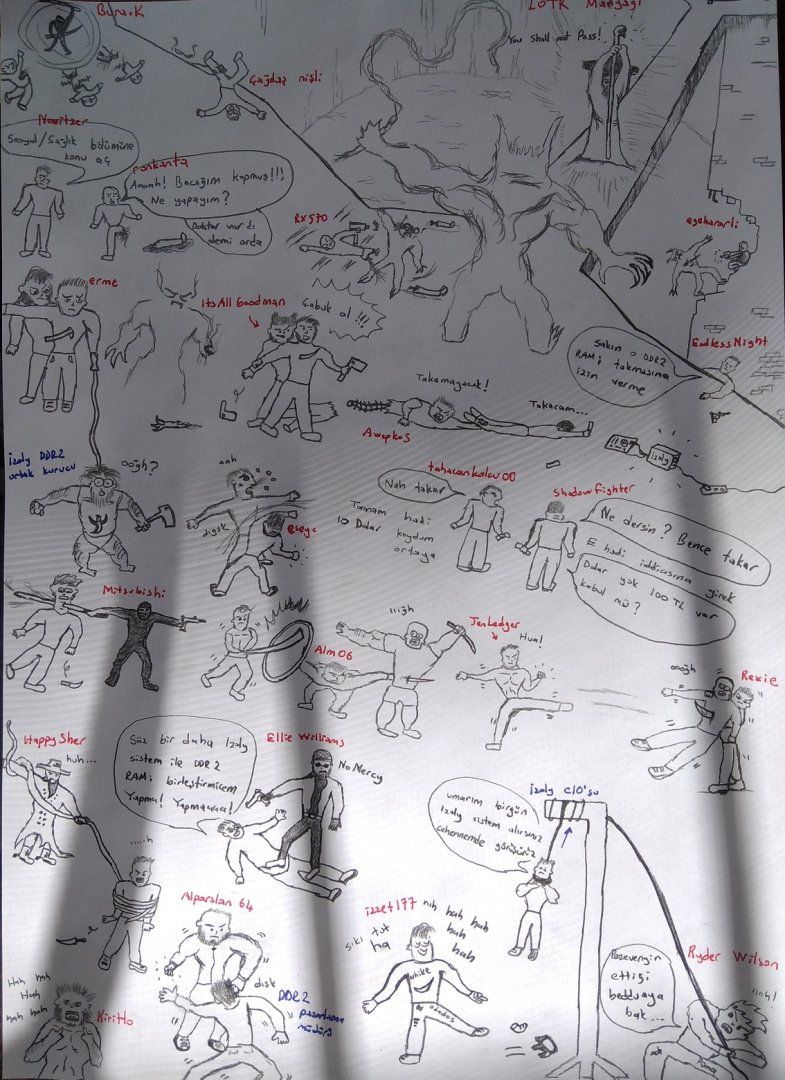 Burak.K
LOTR Manyağı
You shall not Pass!
Çağdaş
Nowitzer
Sosyal/Sağlık bölümüne
konu aç
Aaaah! Bacağım kopmuş!!!
Ne yapayım?
Doktor vardı
demi orda
RX570
egekararli
erme
ItsAllGoodman
Çabuk ol!!!
EndlessNight
Sakın o DDR2
RAMi takmasına
izin verme
Takamayacak!
Takacam...
Awepkos
izoly
izoly DDR2
ortak kurucu
ooğh?
aah
dişsk
tahacankolcu00
Nah takar
Tamam hadi
10 Dolar koydum
ortaya
Shadowfighter
Ne dersin? Bence takar
E hadi iddiasına girek
Dolar yok 100 TL var
kabul mü?
Mitsubishi
ıııgh
Alm06
JenLedger
Hua!
Rexie
oooğh
HappySher
huh...
Söz bir daha izoly
sistem ile DDR2
RAMi birleştirmicem
Yapma! Yapmauua!
Ellie Williams
No Mercy
izoly CIO'su
umarım birgün
izoly sistem alırsınız
cehennemde görüşürüz
Alparslan 64
disk
DDR2
pazarlama
müdürü
izzet177
nıh hah hah
hah
hah
sıkı tut
ha
nhike
adados
Ryder Wilson
Pezevengin
ettiği
bedduaya
bak...
ıııgh!
Puma
Hah hah
Hah
hah hah
Kiritto